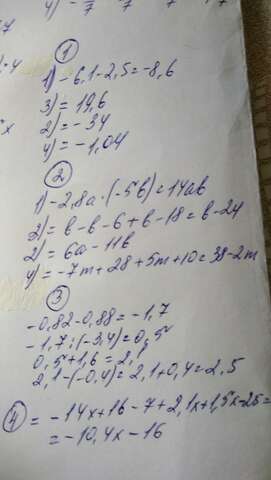 4) -
1
1) -6,1-2,5=-8,6
3) = 19,6
2) = -34
4) = -1,04
2
1) -2,8a·(-5b)=14ab
2) = b-b-6+b-18=b-24
2) = 6a-11b
4) = -7m+28+5m+10=38-2m
3
-0,82-0,88=-1,7
-1,7:(-3,4)=0,5
0,5+1,6=2,1
2,1-(-0,4)=2,1+0,4=2,5
4 = -14x+16-7+2,1x+1,5x-25=
= -10,4x-16